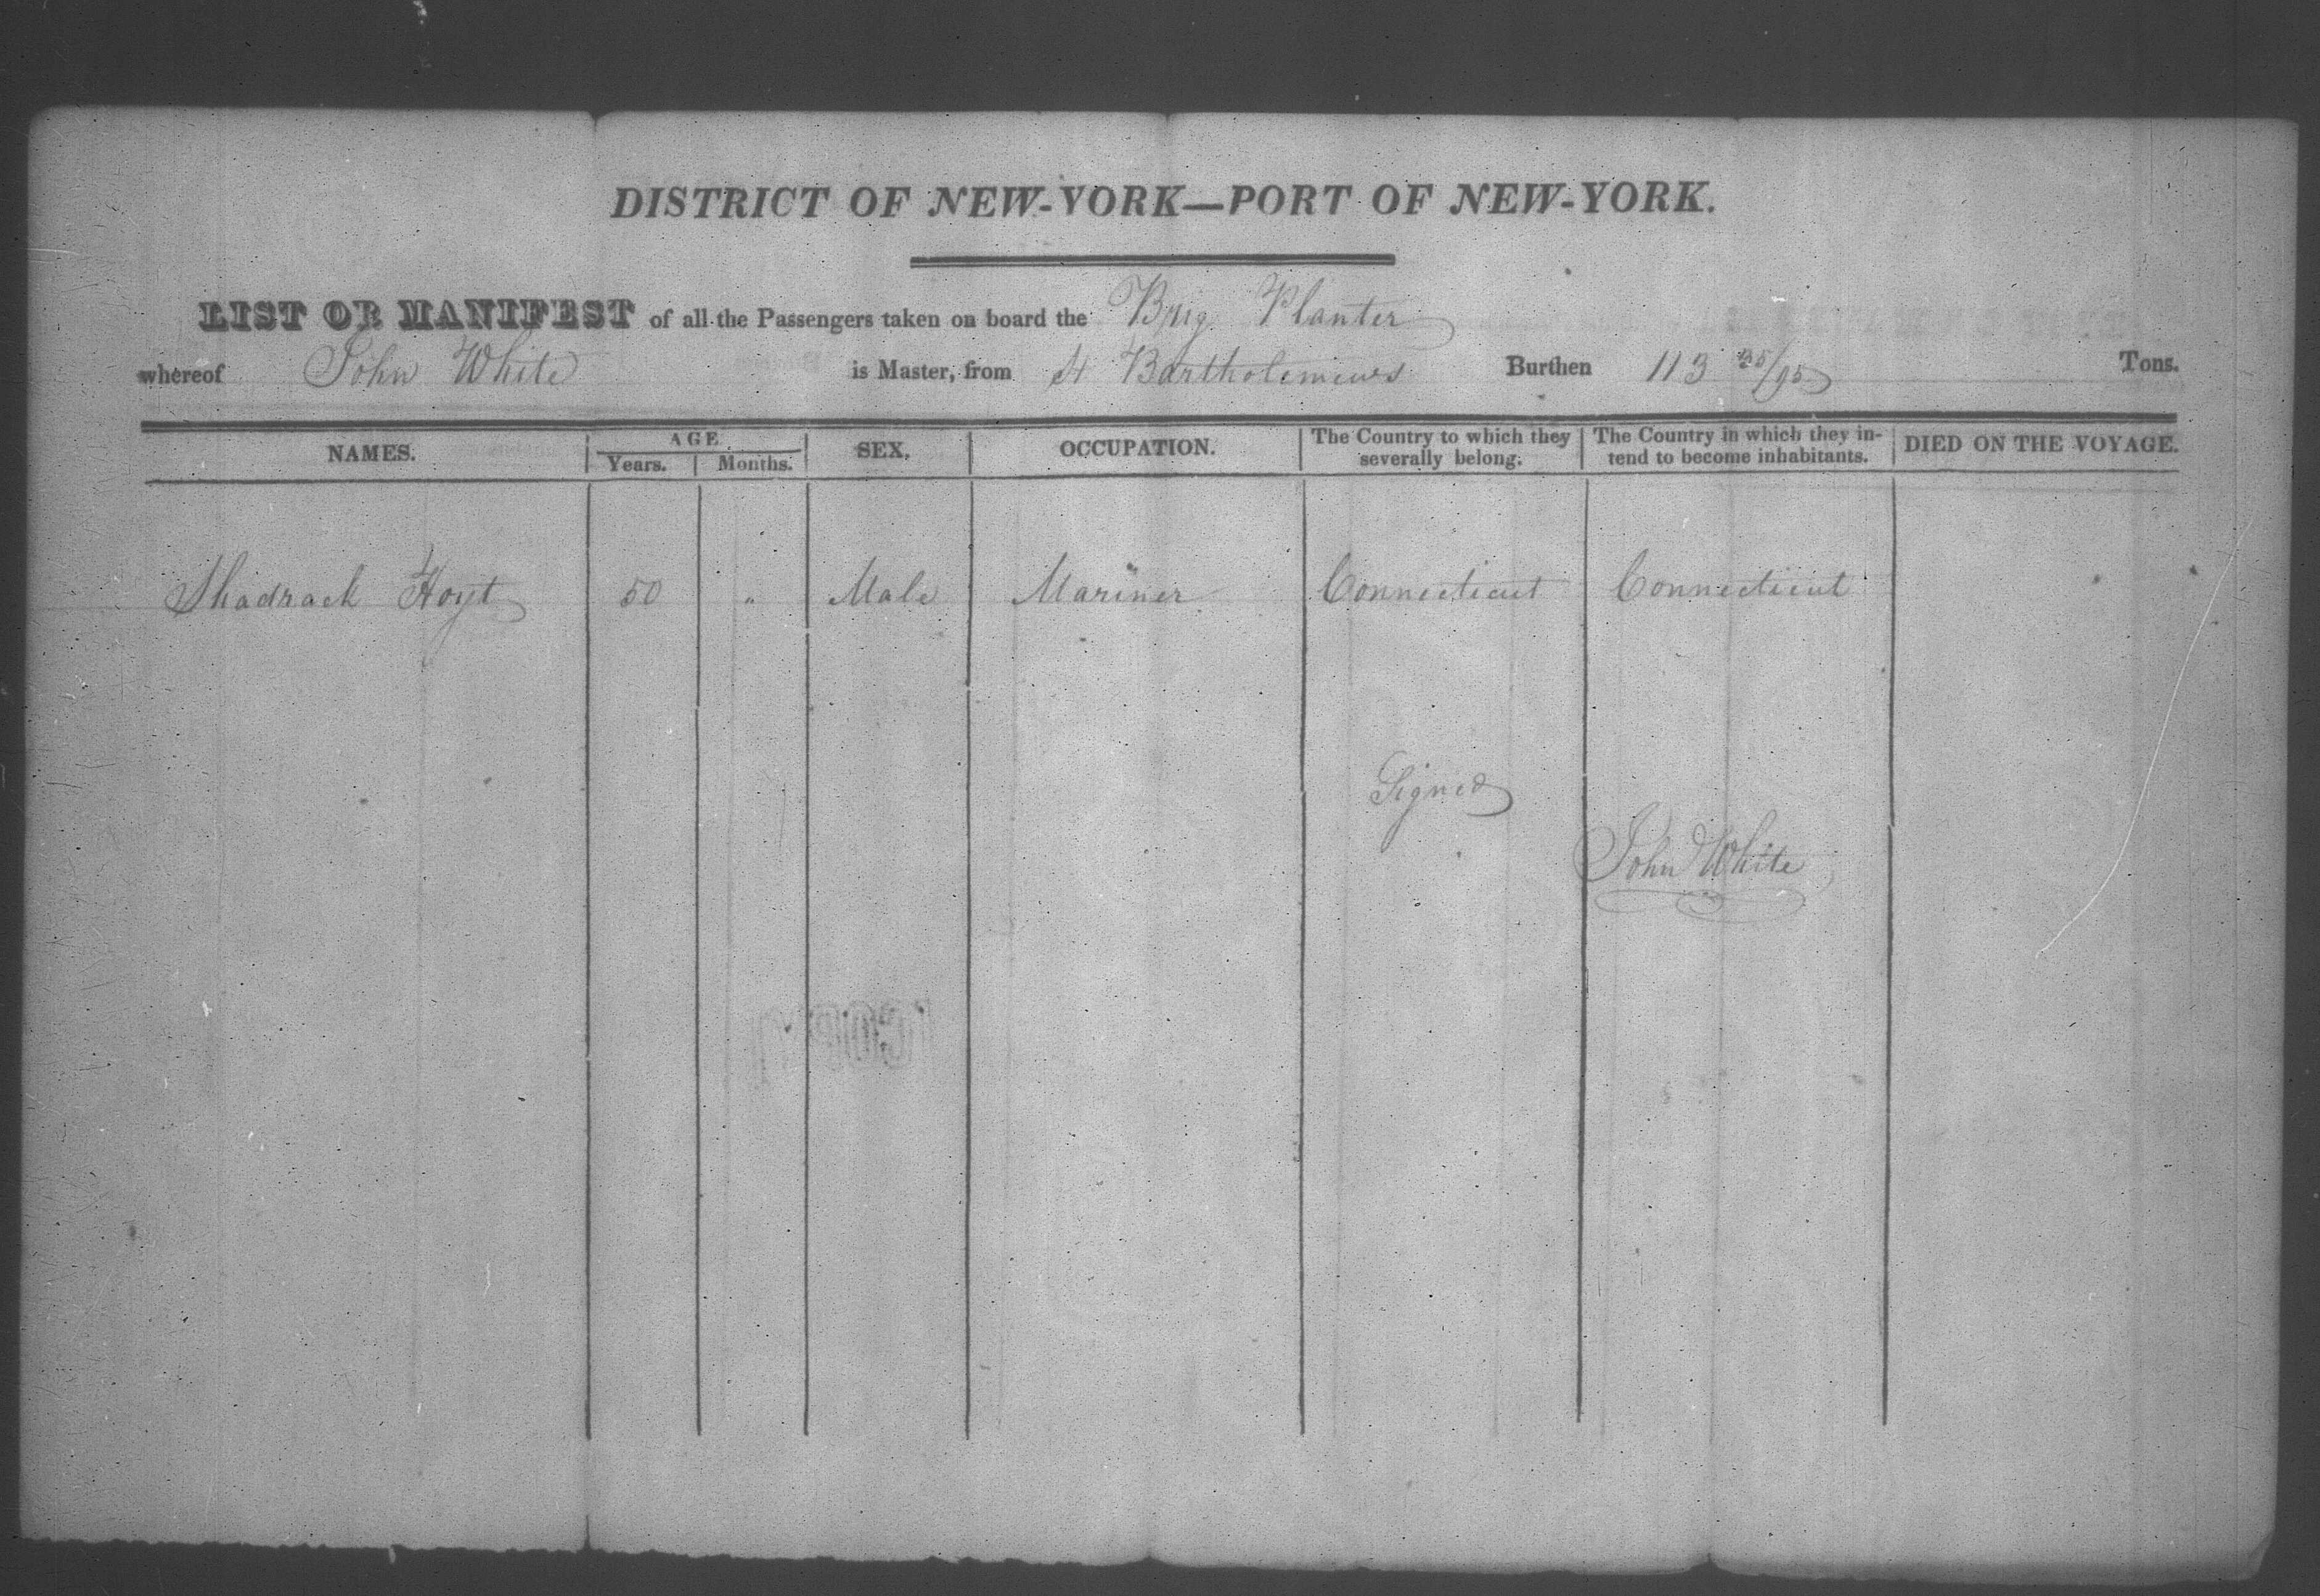 DISTRICT OF NEW-YORK—PORT OF NEW-YORK.
LIST OR MANIFEST of all the Passengers taken on board the Brig Planter
whereof John White is Master, from St Bartholemews Burthen 113 25/95 Tons.
NAMES. AGE SEX. OCCUPATION. The Country to which they severally belong. The Country in which they intend to become inhabitants. DIED ON THE VOYAGE.
Years. Months.
Shadrack Hoyt 50 " Male Mariner Connecticut Connecticut
Signed
John White